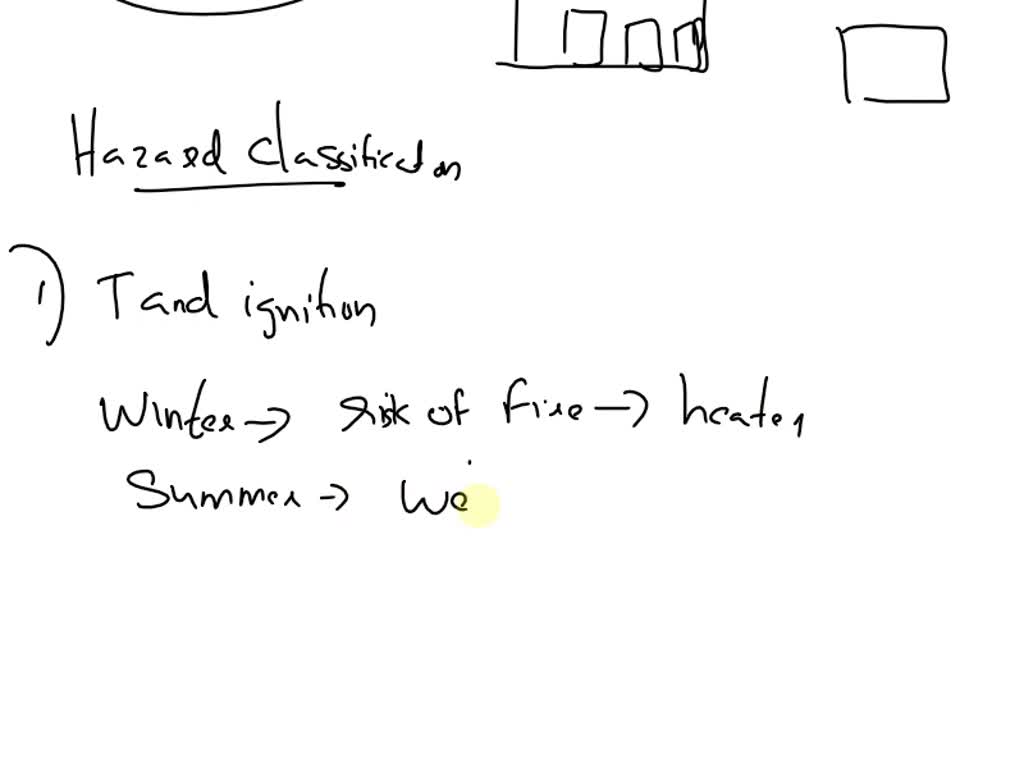 Hazard Classification
1) T and ignition
Winter → risk of fire → heater
Summer → We